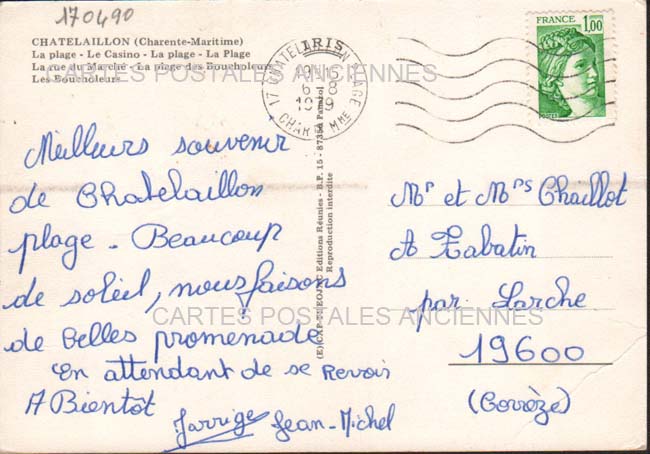 170490
CHATELAILLON (Charente-Maritime)
La plage - Le Casino - La plage - La Plage
La rue du Marché - La plage des Boucholeurs
Les Boucholeurs
IRIS
17 CHATELAILLON PLAGE
6 - 8
1979
CHARTE Mme
FRANCE 1,00
POSTES
CARTES POSTALES ANCIENNES
Meilleurs souvenir
de Chatelaillon
plage - Beaucoup
de soleil, nous faisons
de belles promenade
En attendant de se revoir
A Bientôt
Jarrige Jean-Michel
Editions Réunies - B.P. 15 - 87350 Panazol
Reproduction interdite
Mr et Mrs Chaillot
A Zabatin
par Larche
19600
(Corrèze)
CARTES POSTALES ANCIENNES